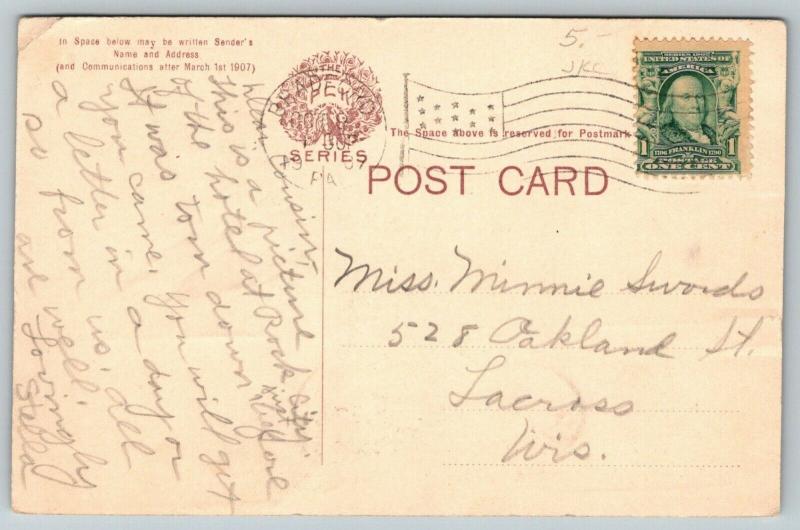 In Space below may be written Sender's
Name and Address
(and Communications after March 1st 1907)
THE
PEK
SERIES
BRAD
PA
5.-
JKC
SERIES 1902
UNITED STATES OF
AMERICA
1 1706 FRANKLIN 1790 1
POSTAGE
ONE CENT
The Space above is reserved for Postmark
POST CARD
Dear Cousin,
This is a picture
of the hotel at Rock City.
It was torn down before
you came. You will get
a letter in a day or
so from us. All
are well.
Lovingly
Stella
Miss. Minnie Swords
528 Oakland St.
Lacross
Wis.